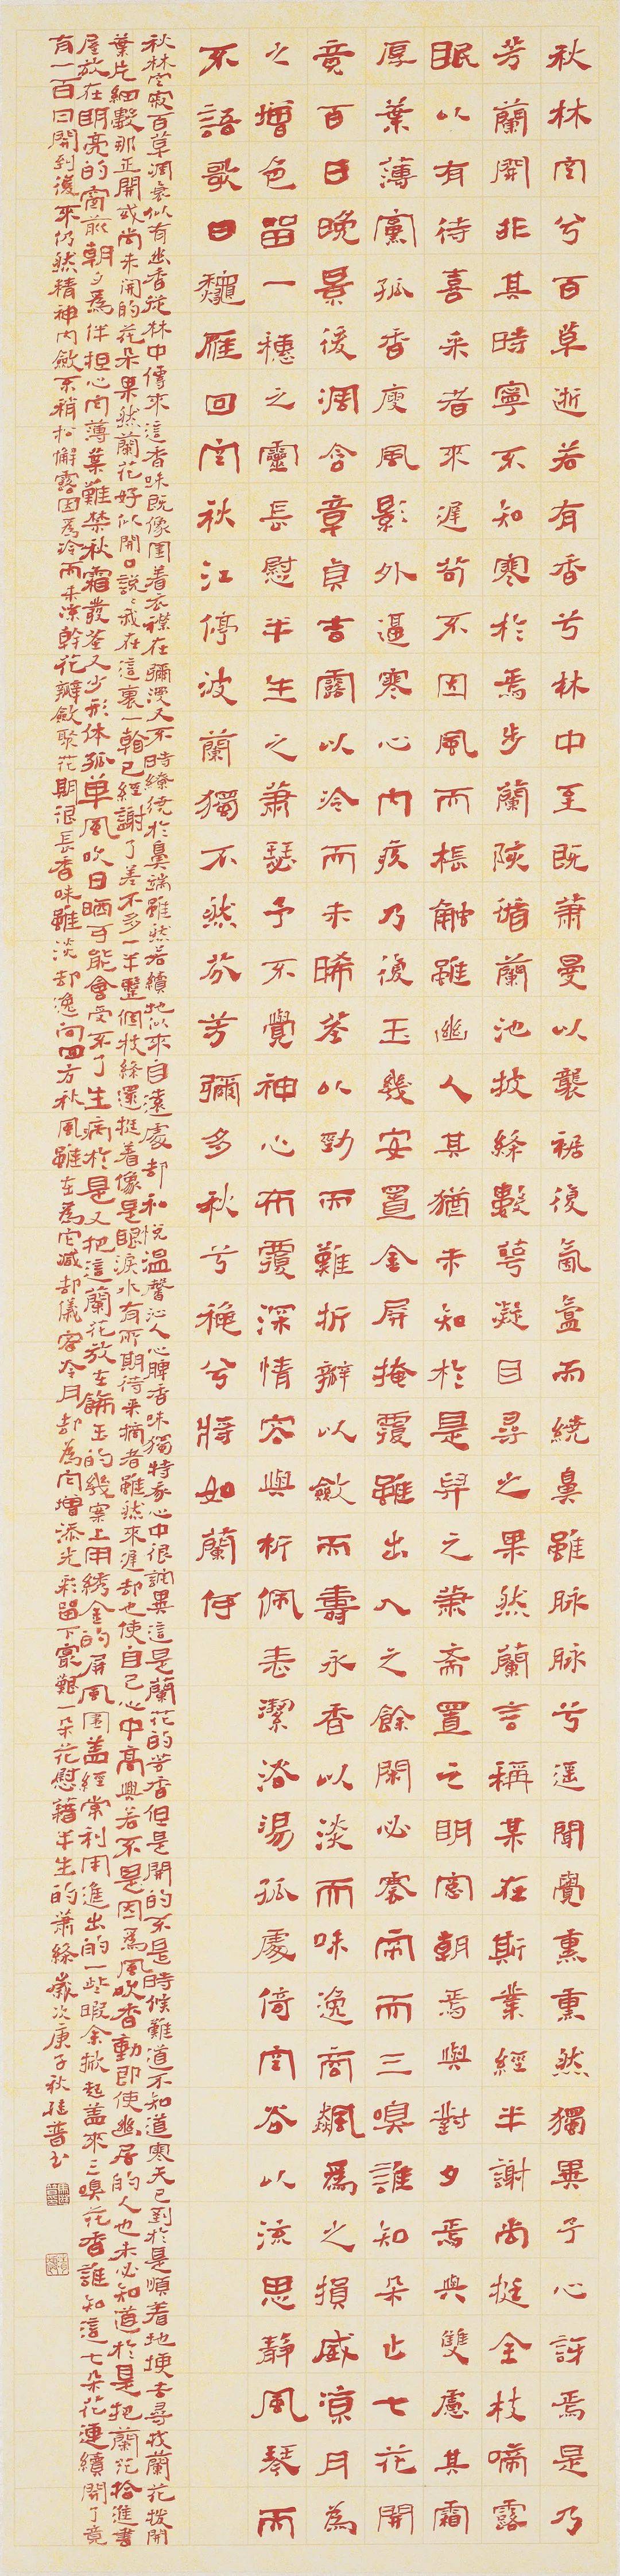 秋林空兮百草逝若有香兮林中至既蕭曼以襲裾復氤氳而繞鼻雖脉脉兮遥聞覺熏熏然獨異予心訝焉是乃
芳蘭開非其時寧不知寒於焉步蘭陔循蘭池披絳數萼凝目尋之果然蘭言稱某在斯業經半謝尚挺全枝啼露
眠以有待喜采者來遲苟不因風而棖觸雖幽人其猶未知於是舁之蕭斋置之明窗朝焉與對夕焉與雙慮其霜
厚葉薄黨孤香瘦風影外逼寒心內疚乃復玉幾安置金屏掩覆雖出入之餘閑必褰帘而三嗅誰知朵止七花開
竟百日晚景後凋含章貞吉露以冷而未晞莖以勁而難折瓣以斂而壽永香以淡而味逸商飆為之損威涼月為
之增色留一穗之靈長慰半生之蕭瑟予不覺神心布覆深情容與析佩表潔浴湯孤處倚空谷以流思靜風琴而
不語歌曰龝雁回空秋江停波蘭獨不然芬芳彌多秋兮秾兮將如蘭何
秋林空寂百草凋衰似有幽香從林中傳來這香味既像圍着衣襟在彌漫又不時繚繞於鼻端雖然若續地似來自遠處却和悅溫馨沁人心脾香味獨特我心中很訝異這是蘭花的芳香但是開的不是時候難道不知道寒天已到於是順着地埂去尋找蘭花撥開
葉片細數那正開或尚未開的花朵果然蘭花好似開口說我在這裏一翰已經謝了差不多一半整個枝絳還挺着像是眼淚水有所期待采摘者雖然來遲却也使自己心中高興若不是因爲風吹香動即使幽居的人也未必知道於是把蘭花拾進書
屋放在明亮的窗前朝夕為伴担心空薄葉難禁秋霜叢莖又少形体孤單風吹日晒可能會受不了生病於是又把這蘭花放在飾玉的幾案上用綉金的屏風圍盖經常利用進出的一些暇余掀起盖來三嗅花香誰知這七朵花連續開了竟
有一百日開到後來仍然精神內斂不稍松懈露因爲冷而未凍幹花瓣斂聚花期很長香味雖淡却逸向四方秋風雖在為它减却儀容冷月却為它增添光彩留下最艱一朵花慰藉半生的蕭絳歲次庚子秋普書